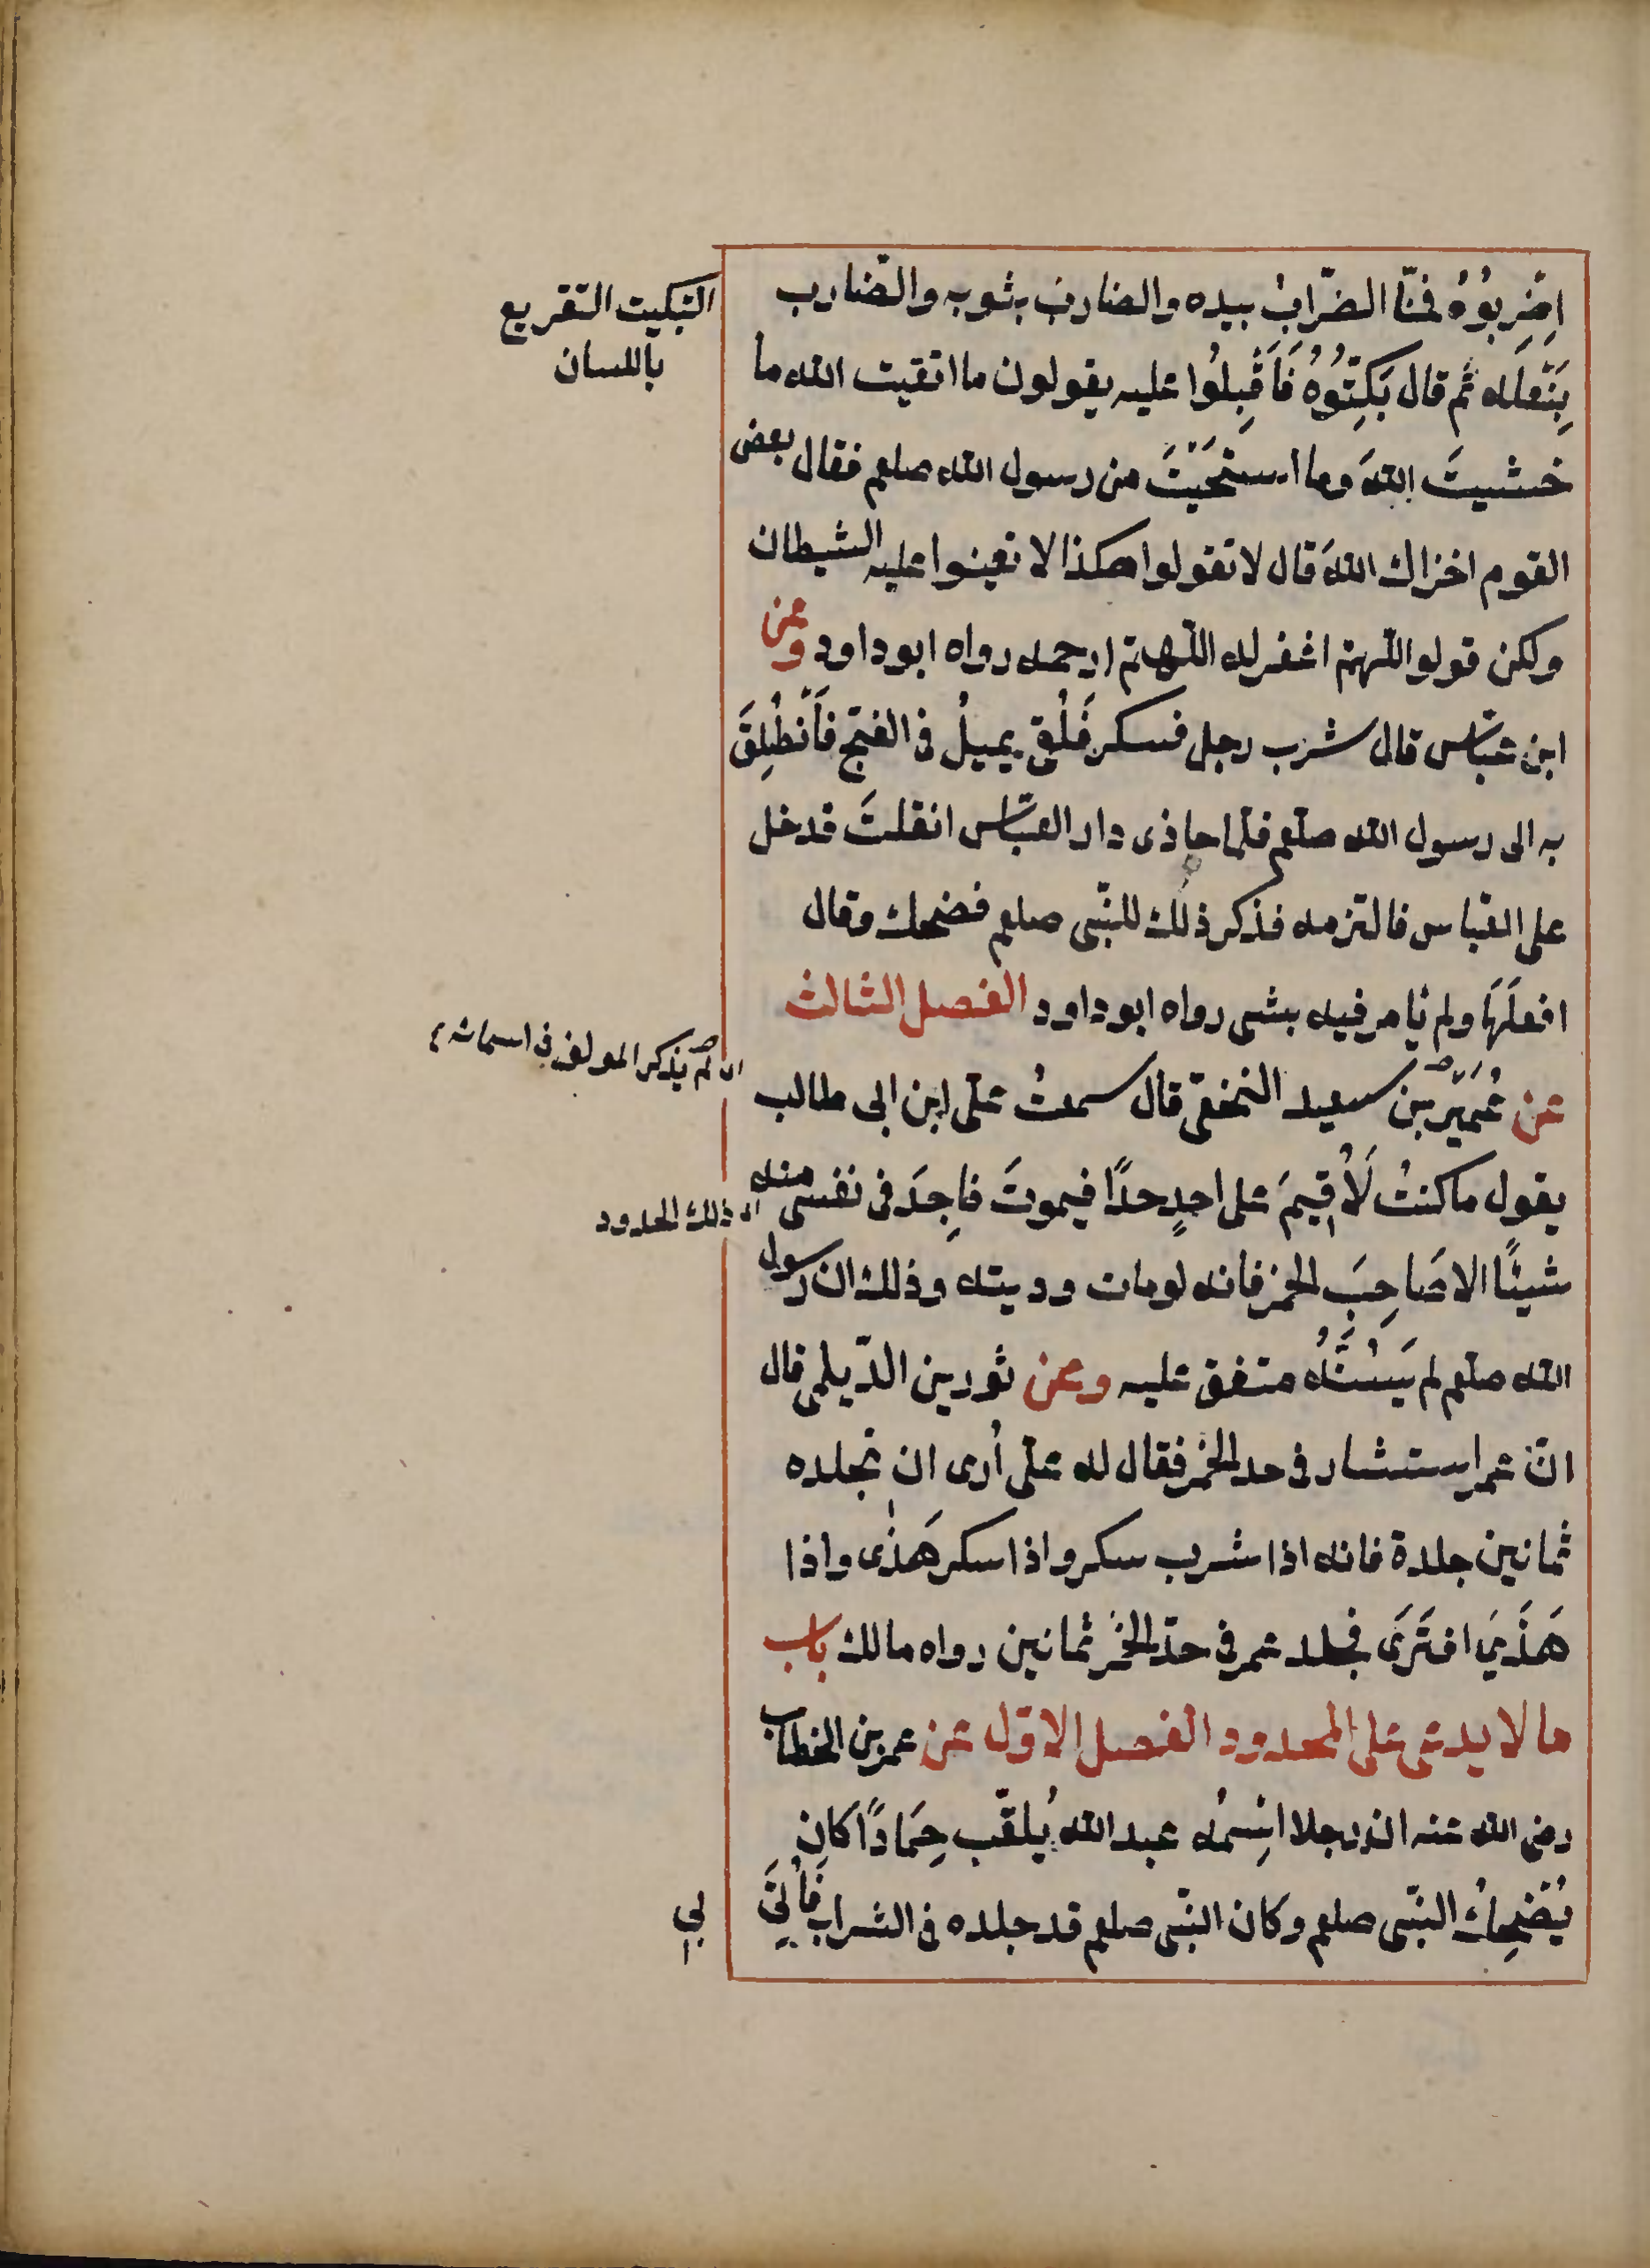 اِضْرِبُوْهُ فمنّا الضّرابُ بيده والضارب بثوبه والضارب
بِنَعلَله ثم قال بَكِّتُوْهُ فَاَقْبِلُوا عليه يقولون ما اتقيت الله ما
خشيتَ اللهَ وما استحَيَيْتَ من رسول الله صلعم فقال بعض
القوم اخزاك اللهَ قال لا تقولوا هكذا لا تعينوا عليه الشيطان
ولكن قولوا اللّهمّ اغفر له اللّهمّ ارحمه رواه ابو داود وعن
ابن عبّاس قال شرب رجل فسكر فَلُقى يميلُ فى الفجّ فَانْطُلِقَ
به الى رسول الله صلعم فلمّا حاذى دار العبّاس انفلتَ فدخل
على العبّاس فالتزمه فذكر ذٰلك للنّبى صلعم فضحك وقال
افعلَهَا ولم ئامر فيه بشى رواه ابو داود الفصل الثالث
عن عُمَيْر بن سعيد النخعى قال سمعتُ علّى ابن ابى طالب
يقول ما كنتُ لَاُقِيمَ على احدٍ حدًا فيموتَ فاجِدَ فى نفسى منه
شيئًا الا صَاحِبَ الخمر فانه لومات وديته وذلك ان رسول
الله صلعم لم يَسُنَّهُ متفق عليه وعن ثور بن الدّيلمى قال
انّ عمر استشار فى حد الخمر فقال له علّى أرى ان تجلده
ثمانين جلدة فانه اذا شرب سكر واذا سكر هَذٰى واذا
هَذَىَ افتَرَى فجلد عمر فى حدّ الخمر ثمانين رواه مالك باب
ما لا يدعى على المحدود الفصل الاوّل عن عمر بن الخطاب
رضى الله عنه ان رجلا اسْمُه عبد الله يُلقّب حِمَارًا كان
يُضْحِكُ النبّى صلعم وكان النبّى صلعم قد جلده فى الشراب فَاُتِىَ
التبكيت التقريع
باللسان
لم يذكر المولف فى اسمائه
اى ذلك الحدود